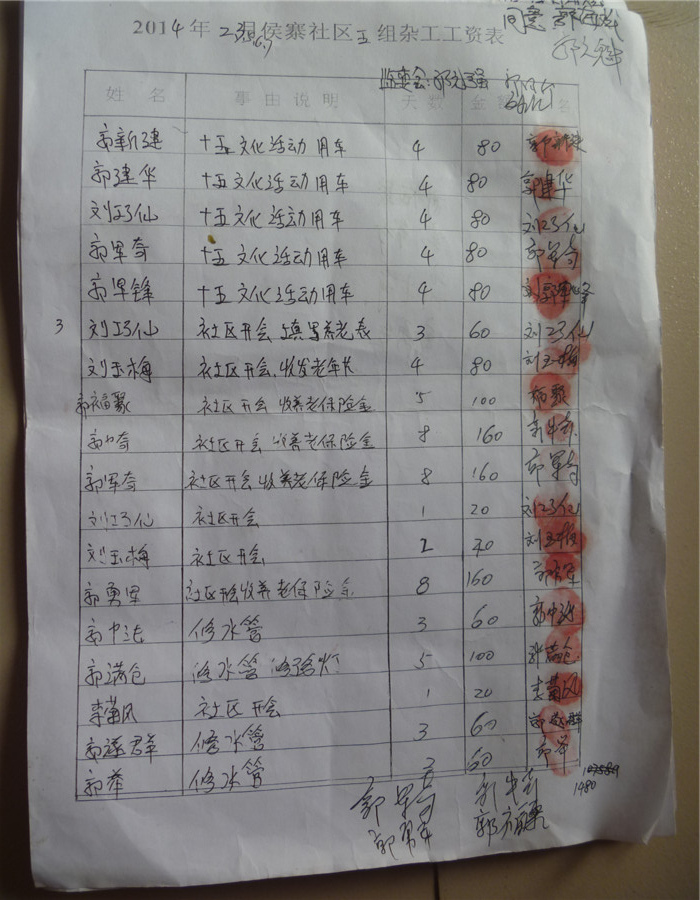 2014年 侯寨社区五组杂工工资表
同意
监委会:
姓名 事由说明 天数 金额 签名
郭新建 十五文化活动用车 4 80 郭新建
郭建华 十五文化活动用车 4 80 郭建华
刘巧仙 十五文化活动用车 4 80 刘巧仙
郭军奇 十五文化活动用车 4 80 郭军奇
郭军锋 十五文化活动用车 4 80
3 刘巧仙 社区开会填写养老表 3 60 刘巧仙
刘玉梅 社区开会 收发老年卡 4 80 刘玉梅
郭福聚 社区开会 收养老保险金 5 100 福聚
社区开会 收养老保险金 8 160
郭军奇 社区开会收养老保险金 8 160 郭军奇
刘巧仙 社区开会 1 20 刘巧仙
刘玉梅 社区开会 2 40 刘玉梅
郭勇军 社区开会收养老保险金 8 160
郭中法 修水管 3 60
郭满仓 修水管 修路灯 5 100 郭满仓
李菊风 社区开会 1 20 李菊风
郭遂群 修水管 3 60
修水管 3 60
1480
郭军奇